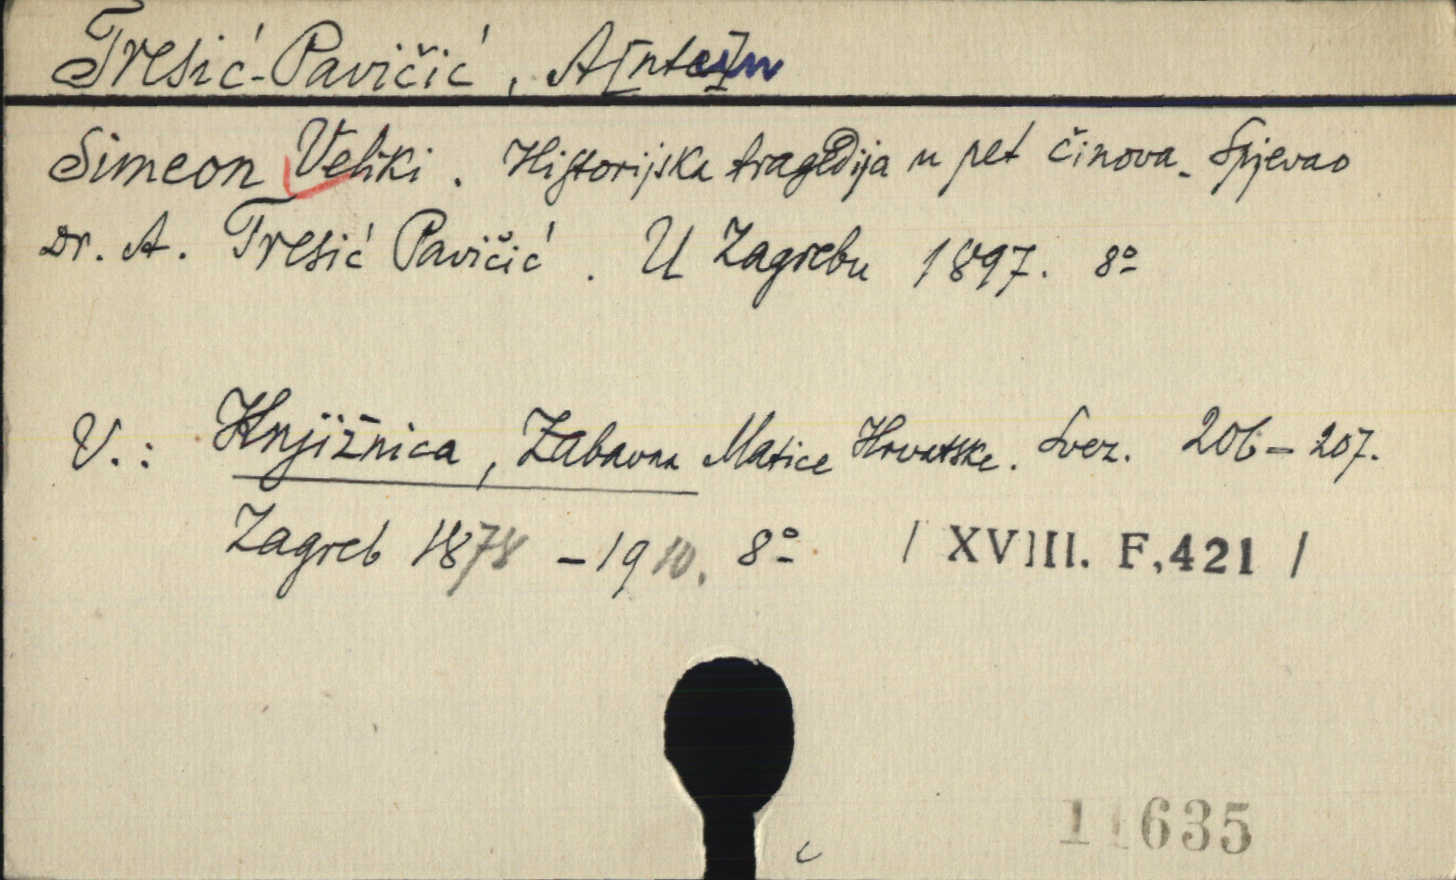 Tresić-Pavičić, A[nte]un
Simeon Veliki. Historijska tragedija u pet činova. Spjevao
Dr. A. Tresić Pavičić. U Zagrebu 1897. 8º
V.: Knjižnica, Zabavna Matice Hrvatske. Svez. 206-207.
Zagreb 1878-1910. 8º / XVIII. F,421 /
11635